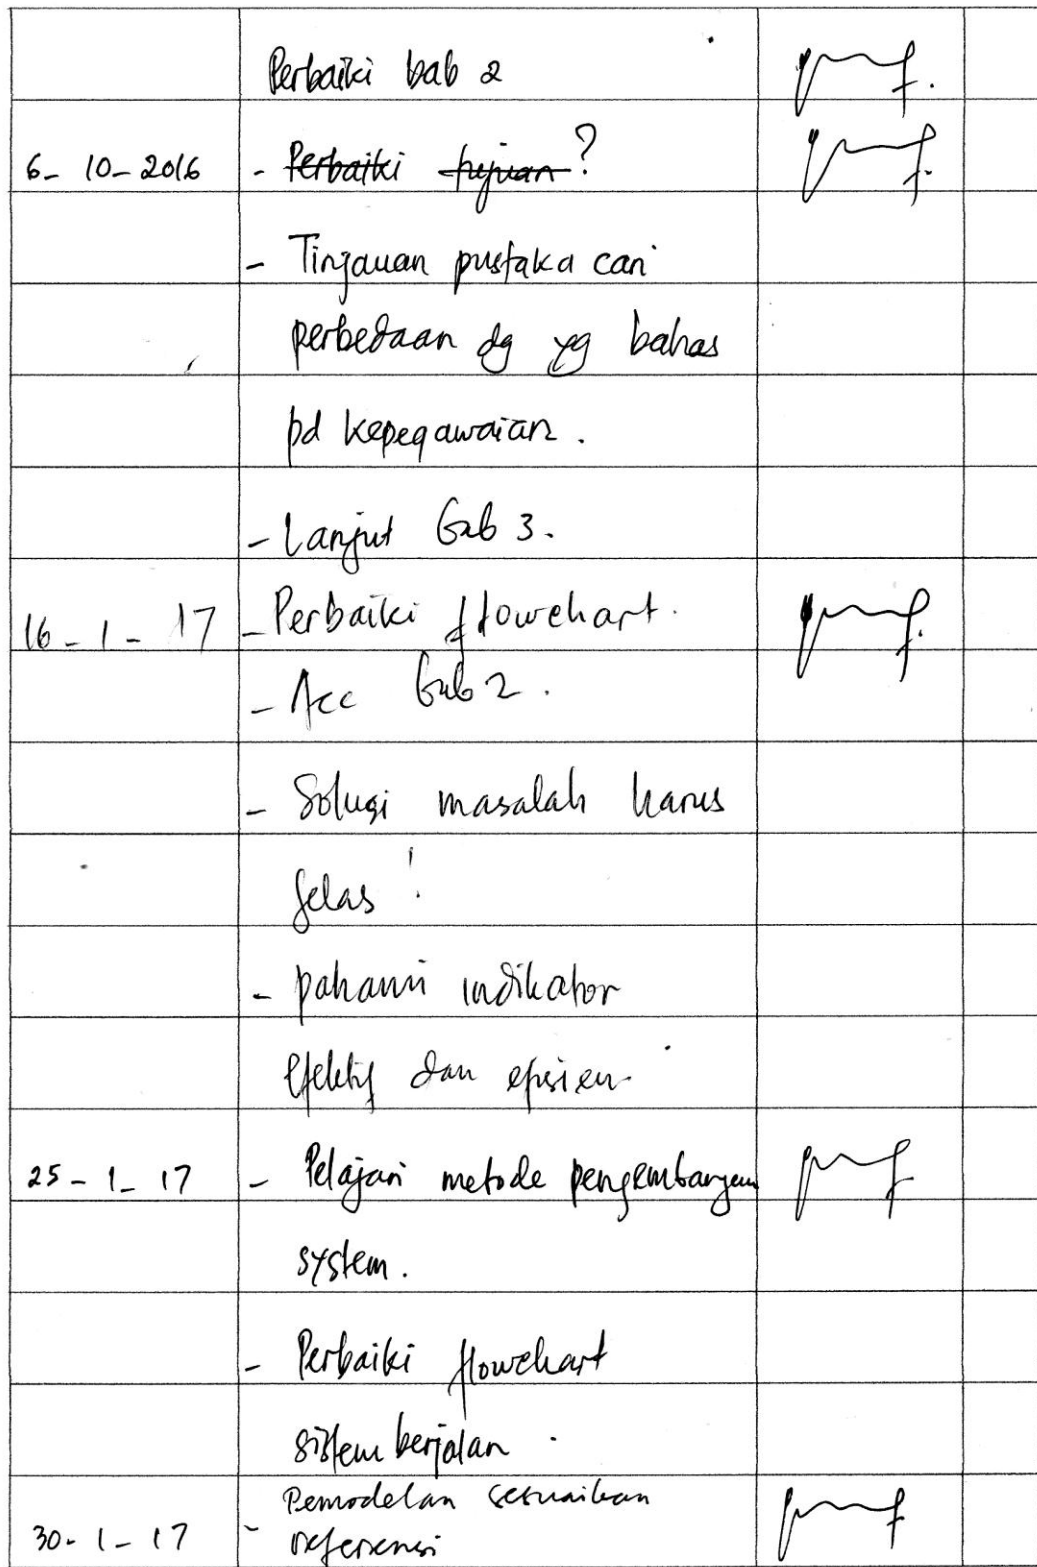 Perbaiki bab 2
6- 10- 2016 - Perbaiki tujuan?
- Tinjauan pustaka cari
perbedaan dg yg bahas
pd kepegawaian.
- Lanjut bab 3.
16 - 1 - 17 - Perbaiki flowchart.
- Acc bab 2.
- Solusi masalah harus
jelas !
- pahami indikator
efektif dan efisien.
25 - 1 - 17 - Pelajari metode pengembangan
system.
- Perbaiki flowchart
sistem berjalan.
- Pemodelan sesuaikan
30- 1 - 17 referensi